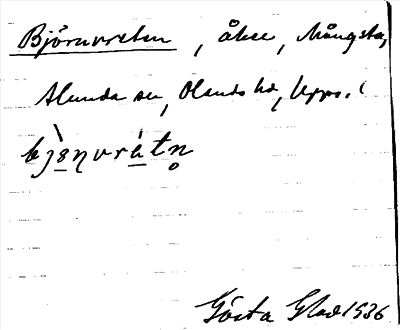 Björnvreten, åker, Mångsta,
Alunda sn, Olands hd, Upps. l
bjɜ̀ηvrètn̥
Gösta Glad 1936